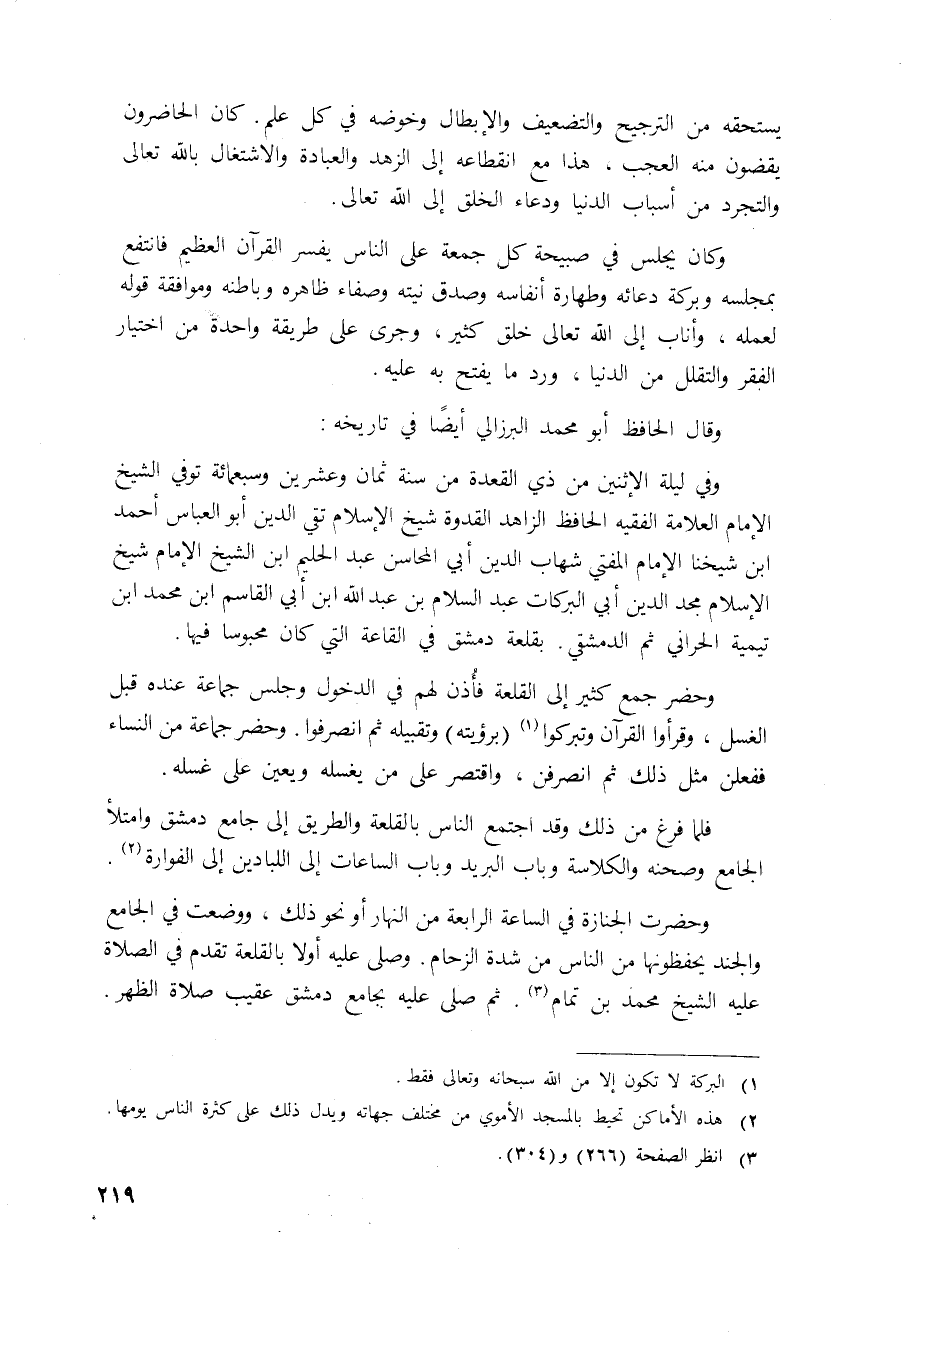 يستحقه من الترجيح والتضعيف والإبطال وخوضه في كل علم. كان الحاضرون
يقضون منه العجب ، هذا مع انقطاعه إلى الزهد والعبادة والاشتغال بالله تعالى
والتجرد من أسباب الدنيا ودعاء الخلق إلى الله تعالى.
وكان يجلس في صبيحة كل جمعة على الناس يفسر القرآن العظيم فانتفع
بمجلسه وبركة دعائه وطهارة أنفاسه وصدق نيته وصفاء ظاهره وباطنه وموافقة قوله
لعمله ، وأناب إلى الله تعالى خلق كثير ، وجرى على طريقة واحدة من اختيار
الفقر والتقلل من الدنيا ، ورد ما يفتح به عليه.
وقال الحافظ أبو محمد البرزالي أيضًا في تاريخه :
وفي ليلة الإثنين من ذي القعدة من سنة ثمان وعشرين وسبعمائة توفي الشيخ
الإمام العلامة الفقيه الحافظ الزاهد القدوة شيخ الإسلام تقي الدين أبو العباس أحمد
ابن شيخنا الإمام المفتي شهاب الدين أبي المحاسن عبد الحليم ابن الشيخ الإمام شيخ
الإسلام مجد الدين أبي البركات عبد السلام بن عبد الله ابن أبي القاسم ابن محمد ابن
تيمية الحراني ثم الدمشقي. بقلعة دمشق في القاعة التي كان محبوسا فيها.
وحضر جمع كثير إلى القلعة فأُذن لهم في الدخول وجلس جماعة عنده قبل
الغسل ، وقرأوا القرآن وتبركوا(١) (برؤيته) وتقبيله ثم انصرفوا. وحضر جماعة من النساء
ففعلن مثل ذلك ثم انصرفن ، واقتصر على من يغسله ويعين على غسله.
فلما فرغ من ذلك وقد اجتمع الناس بالقلعة والطريق إلى جامع دمشق وامتلأ
الجامع وصحنه والكلاسة وباب البريد وباب الساعات إلى اللبادين إلى الفوارة(٢).
وحضرت الجنازة في الساعة الرابعة من النهار أو نحو ذلك ، ووضعت في الجامع
والجند يحفظونها من الناس من شدة الزحام. وصلى عليه أولا بالقلعة تقدم في الصلاة
عليه الشيخ محمد بن تمام(٣). ثم صلى عليه بجامع دمشق عقيب صلاة الظهر.
١) البركة لا تكون إلا من الله سبحانه وتعالى فقط.
٢) هذه الأماكن تحيط بالمسجد الأموي من مختلف جهاته ويدل ذلك على كثرة الناس يومها.
٣) انظر الصفحة (٢٦٦) و(٣٠٤).
٢١٩